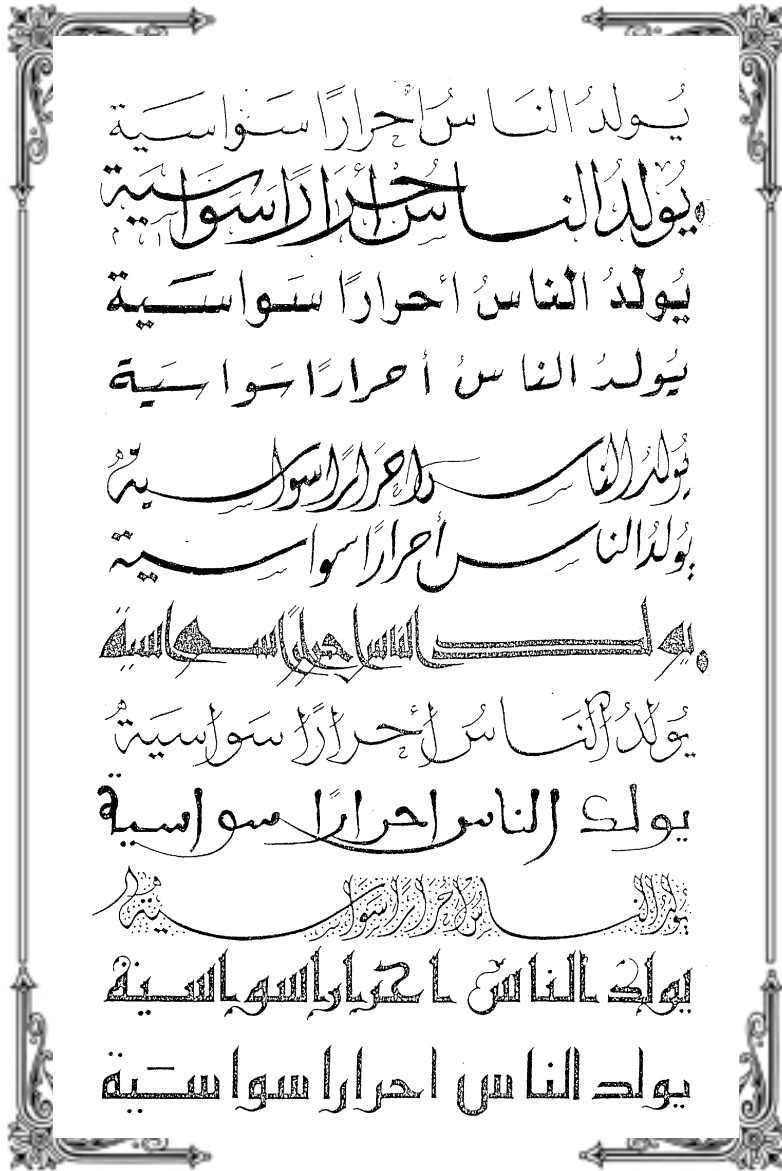 يُولدُ النَاسُ أحرارًا سَواسَية
يُولدُ الناسُ أحرَارًا سَوَاسيَة
يُولدُ الناسُ أحرارًا سَواسَية
يُولدُ الناسُ أحرارًا سَواسَية
يُولدُ الناس احرَارًا سواسية
يُولدُ الناس أحرارًا سواسية
يولد الناس احرارًا سواسية
يُولدُ النَاسُ أحرارًا سَواسَية
يولد الناس احرارًا سواسية
يولد الناس احرارًا سواسية
يولد الناس احرارا سواسية
يولد الناس احرارا سواسية